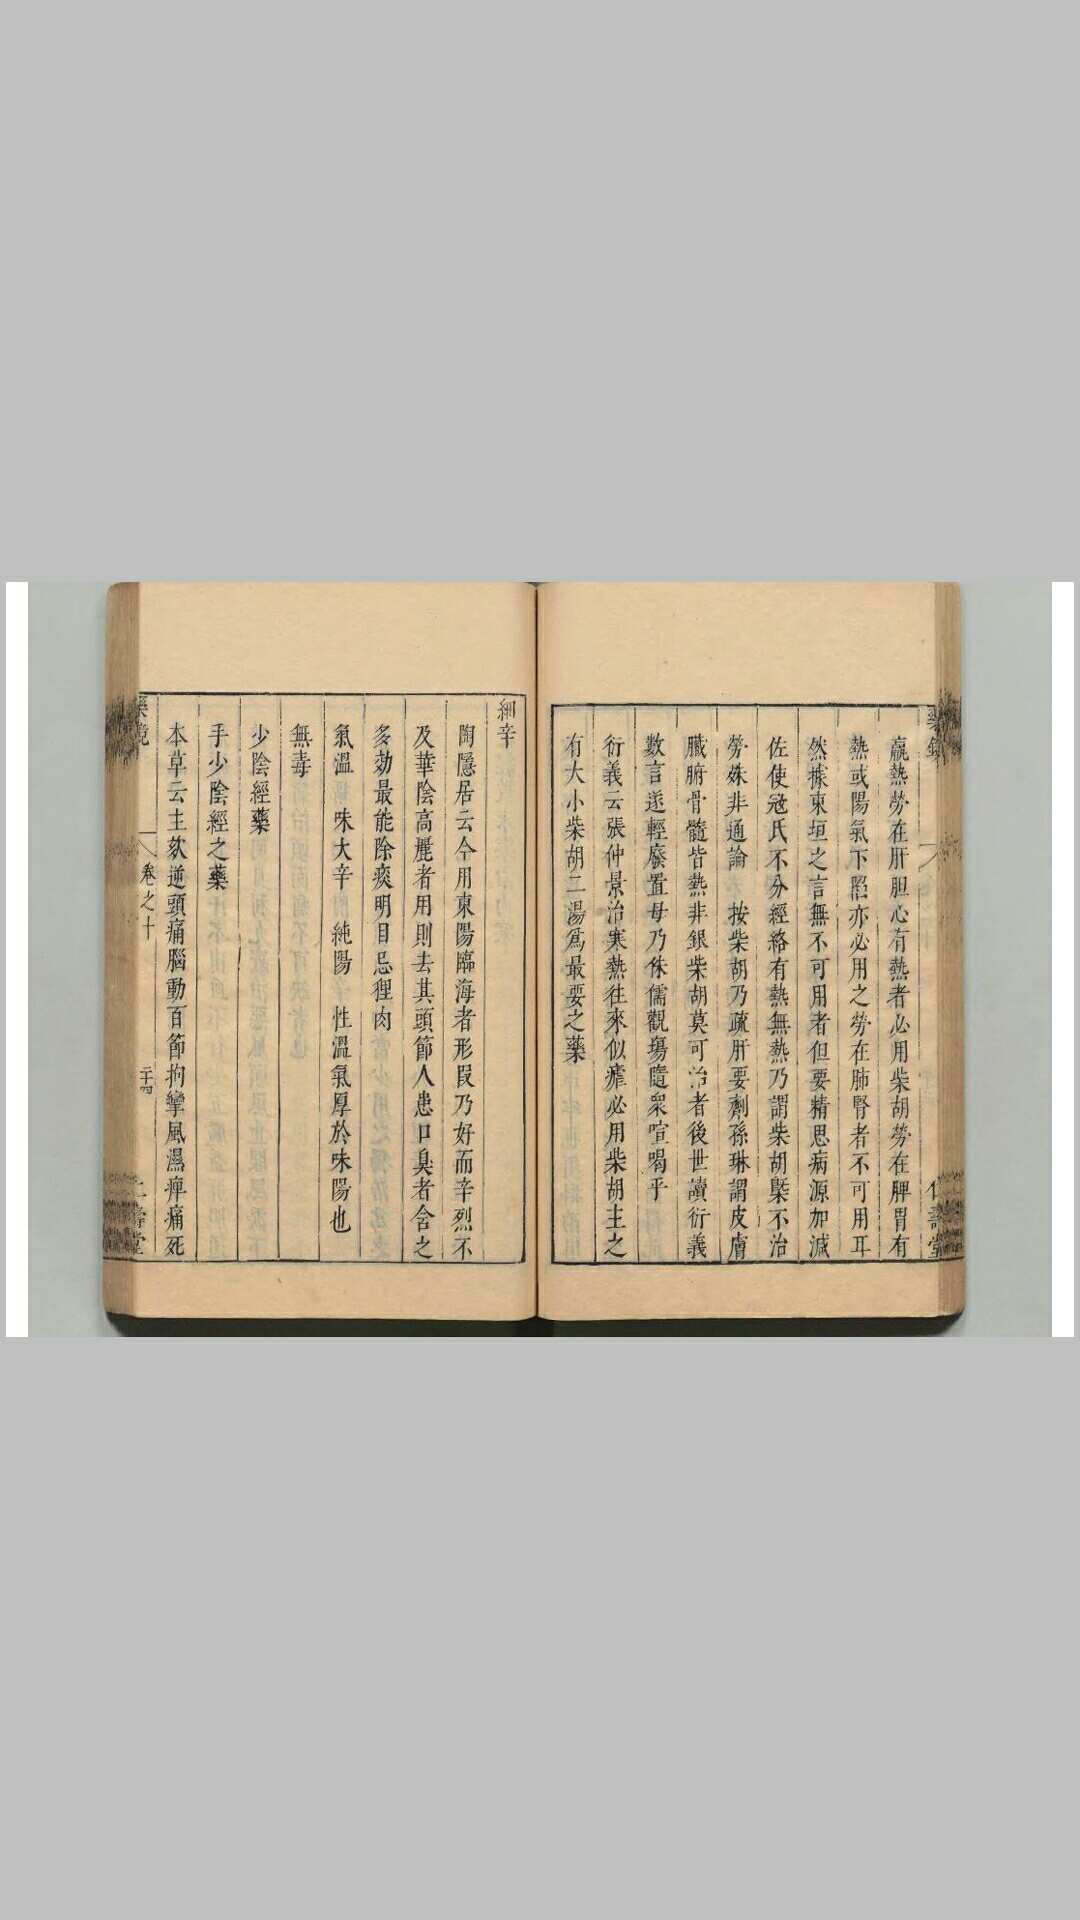 羸熱勞在肝胆心有熱者必用柴胡勞在脾胃有
熱或陽氣下陷亦必用之勞在肺腎者不可用耳
然據東垣之言無不可用者但要精思病源加減
佐使寇氏不分經絡有熱無熱乃謂柴胡槩不治
勞殊非通論 按柴胡乃疏肝要劑孫琳謂皮膚
臟腑骨髓皆熱非銀柴胡莫可治者後世讀衍義
數言遂輕廢置毋乃侏儒觀塲隨衆喧喝乎
衍義云張仲景治寒熱往來似瘧必用柴胡主之
有大小柴胡二湯爲最要之藥
細辛
陶隱居云今用東陽臨海者形段乃好而辛烈不
及華陰高麗者用則去其頭節人患口臭者含之
多効最能除痰明目忌狸肉
氣溫 味大辛 純陽 性溫氣厚於味陽也
無毒
少陰經藥
手少陰經之藥
本草云主欬逆頭痛腦動百節拘攣風濕痺痛死
卷之十
二十四